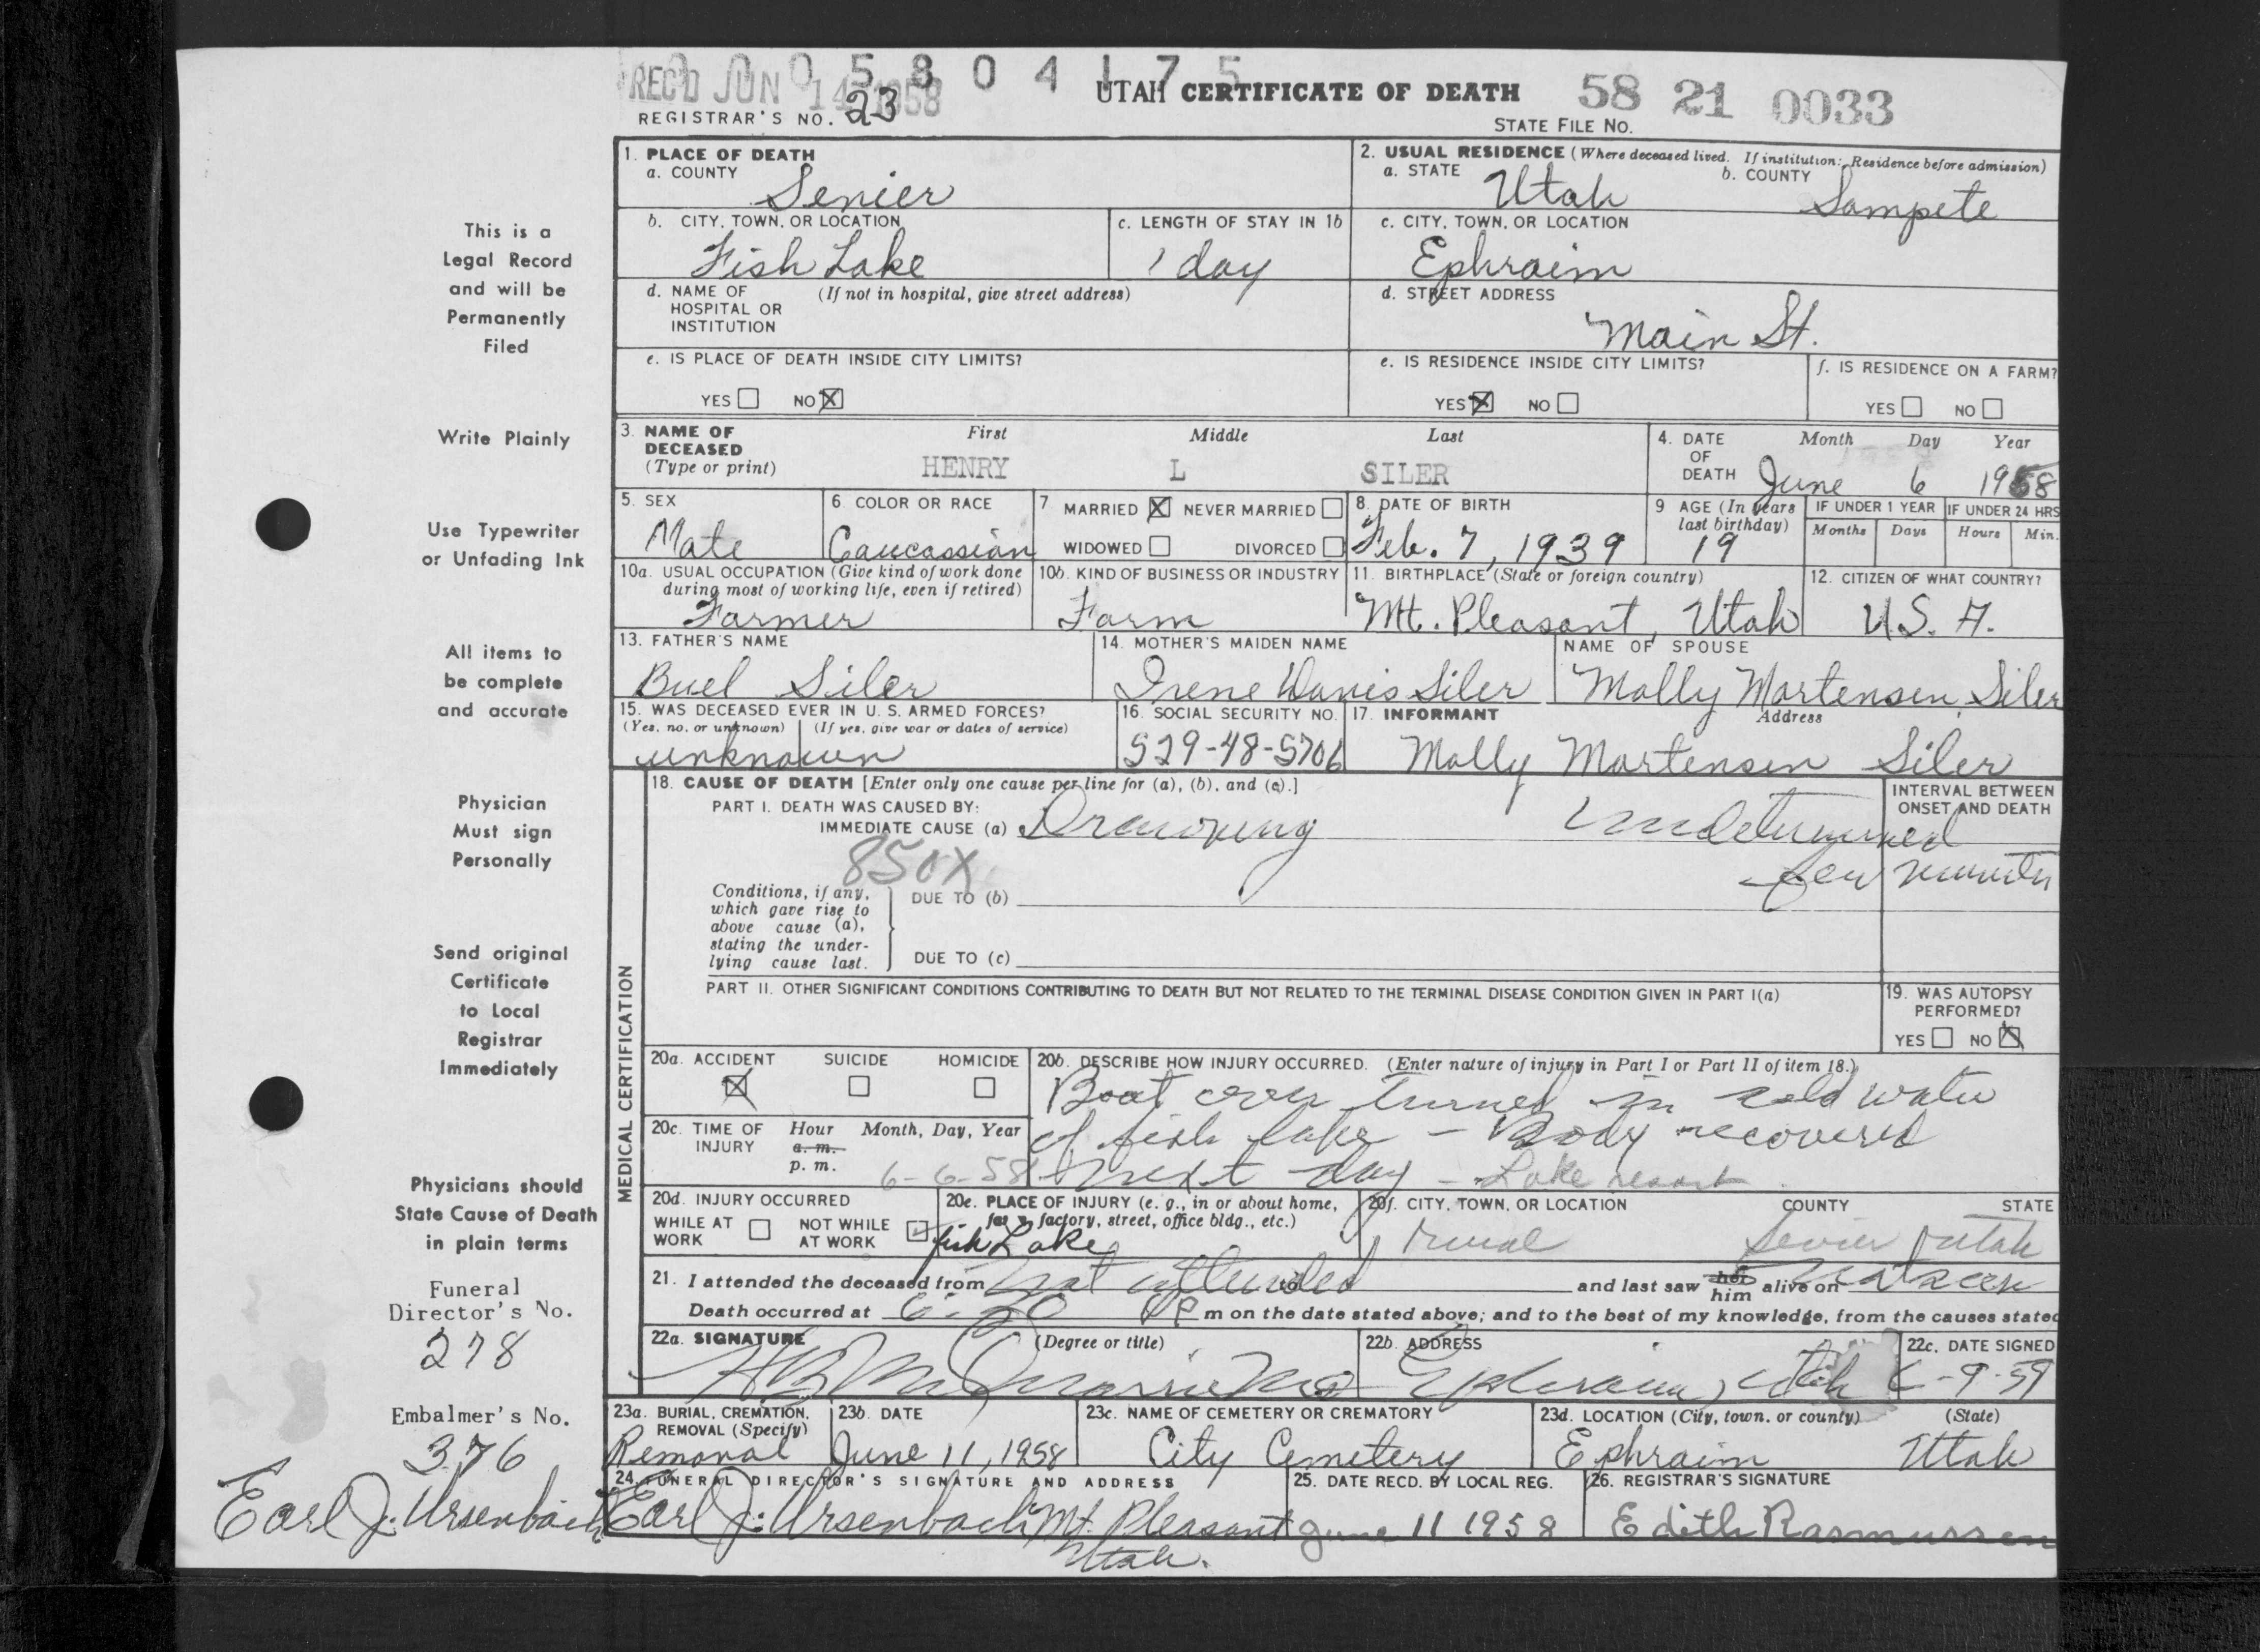 REC'D JUN 14 1958
0 0 0 5 8 0 4 1 7 5
UTAH CERTIFICATE OF DEATH
58 21 0033
REGISTRAR'S NO. 23
STATE FILE NO.
This is a
Legal Record
and will be
Permanently
Filed
Write Plainly
Use Typewriter
or Unfading Ink
All items to
be complete
and accurate
Physician
Must sign
Personally
Send original
Certificate
to Local
Registrar
Immediately
Physicians should
State Cause of Death
in plain terms
Funeral
Director's No.
278
Embalmer's No.
376
Earl J. Ursenbach
1. PLACE OF DEATH
a. COUNTY Senier
2. USUAL RESIDENCE (Where deceased lived. If institution: Residence before admission)
a. STATE Utah b. COUNTY Sampete
b. CITY, TOWN, OR LOCATION Fish Lake
c. LENGTH OF STAY IN 1b 1 day
c. CITY, TOWN, OR LOCATION Ephraim
d. NAME OF HOSPITAL OR INSTITUTION (If not in hospital, give street address)
d. STREET ADDRESS Main St.
e. IS PLACE OF DEATH INSIDE CITY LIMITS?
YES NO X
e. IS RESIDENCE INSIDE CITY LIMITS?
YES X NO
f. IS RESIDENCE ON A FARM?
YES NO
3. NAME OF DECEASED (Type or print)
First Middle Last
HENRY L SILER
4. DATE OF DEATH Month Day Year
June 6 1958
5. SEX Male
6 COLOR OR RACE Caucassian
7 MARRIED X NEVER MARRIED
WIDOWED DIVORCED
8. DATE OF BIRTH Feb. 7, 1939
9 AGE (In years last birthday) 19
IF UNDER 1 YEAR Months Days
IF UNDER 24 HRS Hours Min.
10a. USUAL OCCUPATION (Give kind of work done during most of working life, even if retired) Farmer
10b. KIND OF BUSINESS OR INDUSTRY Farm
11. BIRTHPLACE (State or foreign country) Mt. Pleasant, Utah
12. CITIZEN OF WHAT COUNTRY? U.S.A.
13. FATHER'S NAME Buel Siler
14. MOTHER'S MAIDEN NAME Irene Davis Siler
NAME OF SPOUSE Molly Mortensen Siler
15. WAS DECEASED EVER IN U.S. ARMED FORCES?
(Yes, no, or unknown) (If yes, give war or dates of service)
unknown
16. SOCIAL SECURITY NO. 529-48-5706
17. INFORMANT Address
Molly Mortensen Siler
MEDICAL CERTIFICATION
18. CAUSE OF DEATH [Enter only one cause per line for (a), (b), and (c).]
PART I. DEATH WAS CAUSED BY:
IMMEDIATE CAUSE (a) Drowning Undetermined
INTERVAL BETWEEN ONSET AND DEATH
few minutes
850X
Conditions, if any, which gave rise to above cause (a), stating the underlying cause last.
DUE TO (b)
DUE TO (c)
PART II. OTHER SIGNIFICANT CONDITIONS CONTRIBUTING TO DEATH BUT NOT RELATED TO THE TERMINAL DISEASE CONDITION GIVEN IN PART I(a)
19. WAS AUTOPSY PERFORMED?
YES NO X
20a. ACCIDENT X SUICIDE HOMICIDE
20b. DESCRIBE HOW INJURY OCCURRED. (Enter nature of injury in Part I or Part II of item 18.)
Boat over turned in cold water
of fish lake - Body recovered
next day - Lake resort
20c. TIME OF INJURY Hour a.m. p.m. Month, Day, Year
6-6-58
20d. INJURY OCCURRED
WHILE AT WORK NOT WHILE AT WORK
20e. PLACE OF INJURY (e. g., in or about home, farm, factory, street, office bldg., etc.)
fish Lake
20f. CITY, TOWN, OR LOCATION COUNTY STATE
rural Sevier Utah
21. I attended the deceased from not attended to and last saw her him alive on not seen
Death occurred at 6:20 P m on the date stated above; and to the best of my knowledge, from the causes stated
22a. SIGNATURE (Degree or title)
22b. ADDRESS Ephraim, Utah
22c. DATE SIGNED 6-9-58
23a. BURIAL, CREMATION, REMOVAL (Specify) Removal
23b. DATE June 11, 1958
23c. NAME OF CEMETERY OR CREMATORY City Cemetery
23d. LOCATION (City, town, or county) (State)
Ephraim Utah
24. FUNERAL DIRECTOR'S SIGNATURE AND ADDRESS
Earl J. Ursenbach Mt. Pleasant
Utah.
25. DATE RECD. BY LOCAL REG. June 11 1958
26. REGISTRAR'S SIGNATURE Edith Rasmussen